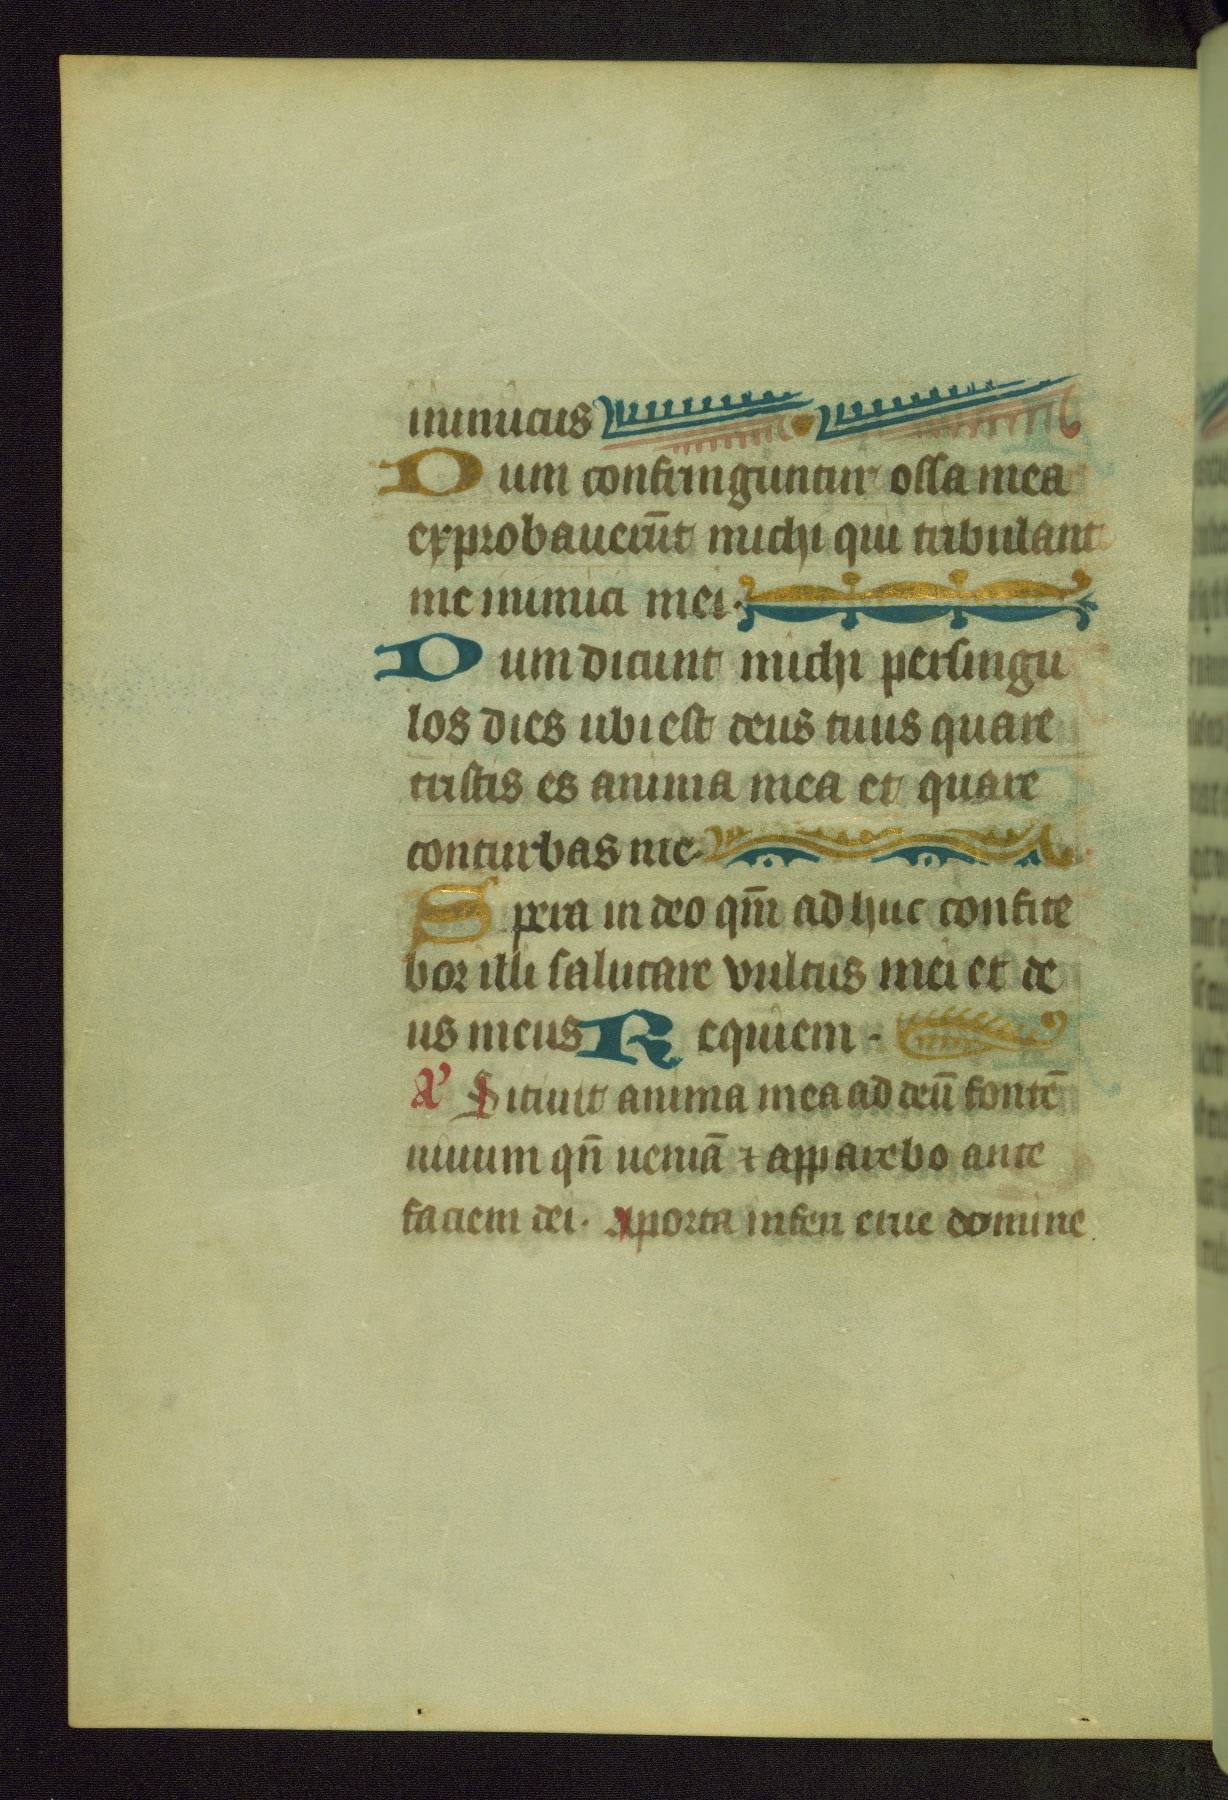 inimicus
Dum confringuntur ossa mea
exprobauerūt michi qui tribulant
me inimici mei.
Dum dicunt michi per singu
los dies ubi est deus tuus quare
tristis es anima mea et quare
conturbas me.
Spera in deo qm̄ ad huc confite
bor illi salutare vultus mei et de
us meus Requiem -
A' Sitiuit anima mea ad deū fontē
uiuum qn̄ ueniā ⁊ apparebo ante
faciem dei. A porta inferi erue domine